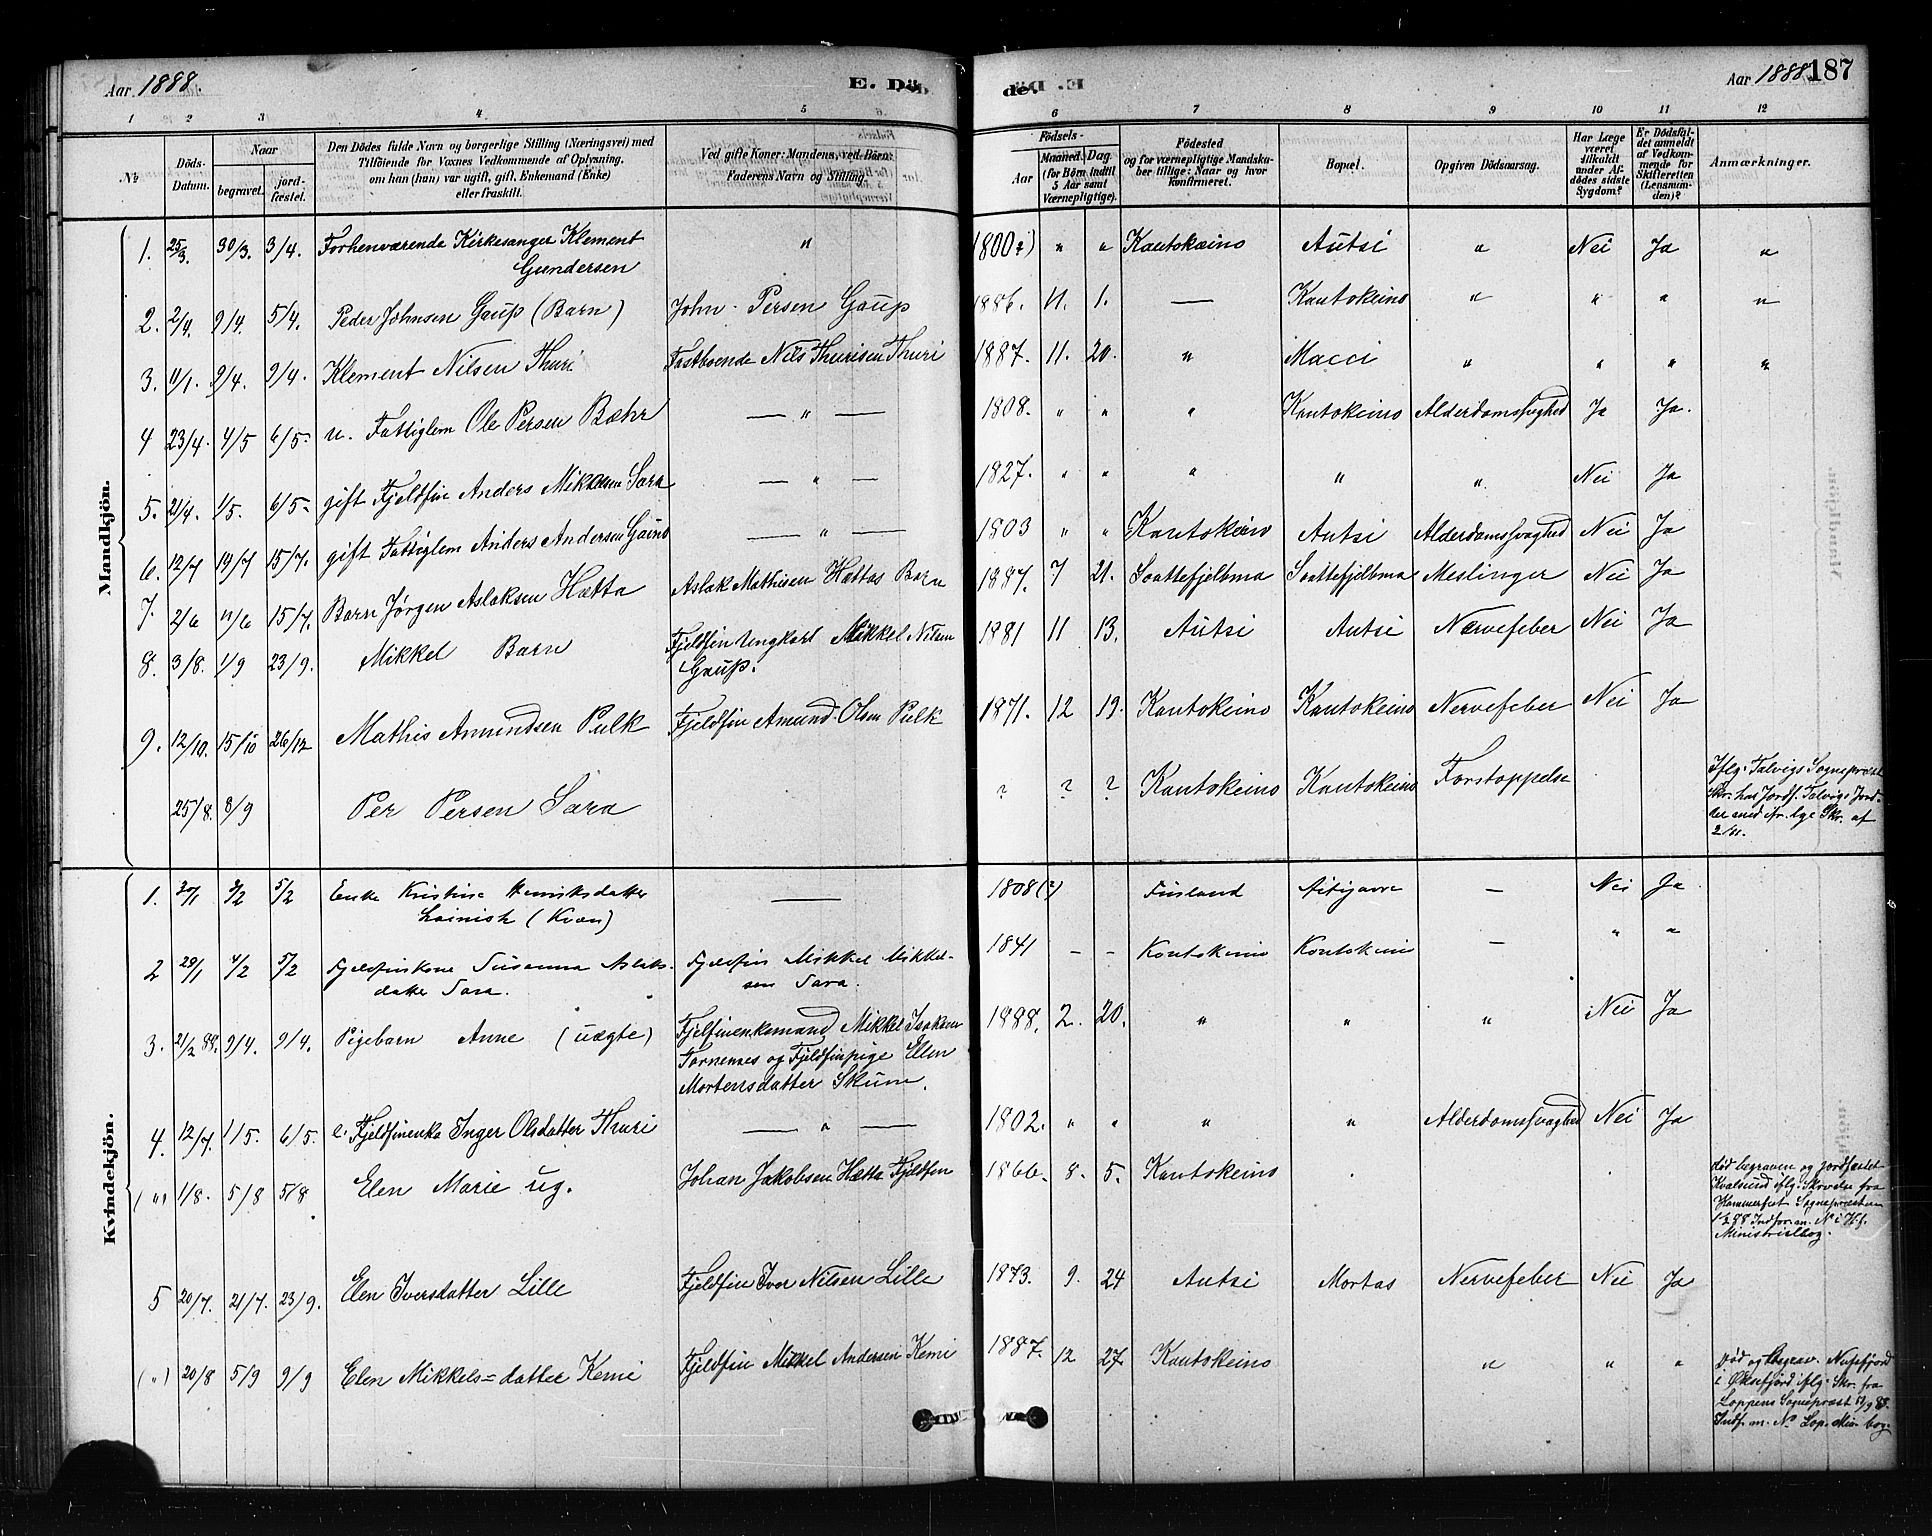 Aar 1888. E. Dö- de. Aar 1888. 187
1 2 3 4 5 6 7 8 9 10 11 12
No. Döds-Datum. Naar begravet. jordfæstet. Den Dödes fulde Navn og borgerlige Stilling (Næringsvei) med Tilföiende for Voxnes Vedkommende af Oplysning, om han (hun) var ugift, gift, Enkemand (Enke) eller fraskilt. Ved gifte Koner: Mandens, ved Börn: Faderens Navn og Stilling. Födsels- Aar Maaned. Dag. (for Börn indtil 5 Aar samt Værnepligtige). Födested og for værnepligtige Mandskaber tillige: Naar og hvor konfirmeret. Bopæl. Opgiven Dödsaarsag. Har Læge været tilkaldt under Afdödes sidste Sygdom? Er Dödsfaldet anmeldt af Vedkommende for Skifteretten (Lensmanden)? Anmærkninger.
Mandkjön.
1. 25/3. 30/3. 3/4. Forhenværende Kirkesanger Klement Gundersen " 1800?) " " Kautokeino Autsi " Nei Ja "
2. 2/4. 9/4. 5/4. Peder Johnsen Gaup (Barn) John Persen Gaup 1886. 11. 1. — Kautokeino " " " "
3. 11/1. 9/4. 9/4. Klement Nilsen Thuri Fastboende Nils Thurisen Thuri 1887. 11. 20. " Macci " " " "
4 23/4. 4/5 6/5 u. Fattiglem Ole Persen Bæhr — " — 1808. " " " Kautokeino Alderdomssvaghed Ja Ja.
5. 21/4. 1/5. 6/5 gift Fjeldfin Anders Mikkelsen Sara — " — 1827. " " " " " Nei Ja
6. 12/7 19/7 15/7. gift Fattiglem Anders Andersen Gaino — " — 1803 " " Kautokeino Autsi Alderdomssvaghed Nei Ja
7. 2/6 11/6 15/7. Barn Jørgen Aslaksen Hætta Aslak Mathisen Hættas Barn 1887. 7 21. Soattefjelbma Soattefjelbma Meslinger Nei Ja
8. 3/8. 1/9 23/9. Mikkel Barn Fjeldfin Ungkarl Mikkel Nilsen Gaup. 1881 11 13. Autsi Autsi Nervefeber Nei Ja
9. 12/10. 15/10 26/12 Mathis Amundsen Pulk Fjeldfin Amund Olsen Pulk 1871. 12 19. Kautokeino Kautokeino Nervefeber Nei Ja
25/8. 8/9 Per Persen Sara ? ? ? Kautokeino Kautokeino Forstoppelse Iflg. Talvigs Sognepræst Skr. har Jordf. Talvig Skr. af 2/11.
Kvindekjön.
1. 20/1 3/2 5/2 Enke Kristine Henriksdatter Lainish (Kvæn) — 1808(?) Finland Aitijavre — Nei Ja
2 29/1 4/2 5/2 Fjeldfinkone Susanna Aslaksdatter Sara. Fjeldfin Mikkel Mikkelsen Sara. 1841 – – Kautokeino Kautokeino — " "
3. 21/2 88. 9/4. 9/4. Pigebarn Anne (uægte) Fjelfinenkemand Mikkel Isaksen Tornensis og Fjeldfinpige Elen Mortensdatter Skum. 1888. 2. 20. " " " Nei Ja
4. 12/7. 1/5. 6/5. e. Fjeldfinenke Inger Olsdatter Thuri — " — 1802. " " " " Alderdomssvaghed Nei Ja
(") 1/8. 5/8 5/8 Elen Marie ug. Johan Jakobsen Hætta Fjeldfin 1866. 8. 5. Kautokeino død begraven og jordfæstet Kvalsund iflg. Skrivelse fra Hammerfest Sognepræstem Indfør. m. No i Hf. Ministrialbog.
5 20/7. 21/7. 23/9. Elen Iversdatter Lille Fjeldfin Iver Nilsen Lille 1873. 9. 24 Autsi Mortas Nervefeber Nei Ja
(") 20/8 5/9 9/9 Elen Mikkels=datter Kemi Fjeldfin Mikkel Andersen Kemi 1887. 12 27. Kautokeino " " " Død og Begrav. Nusfjord i Øksefjord iflg. Skr. fra Loppens Sognepræst Indf. m. No Lop. Min. bog.